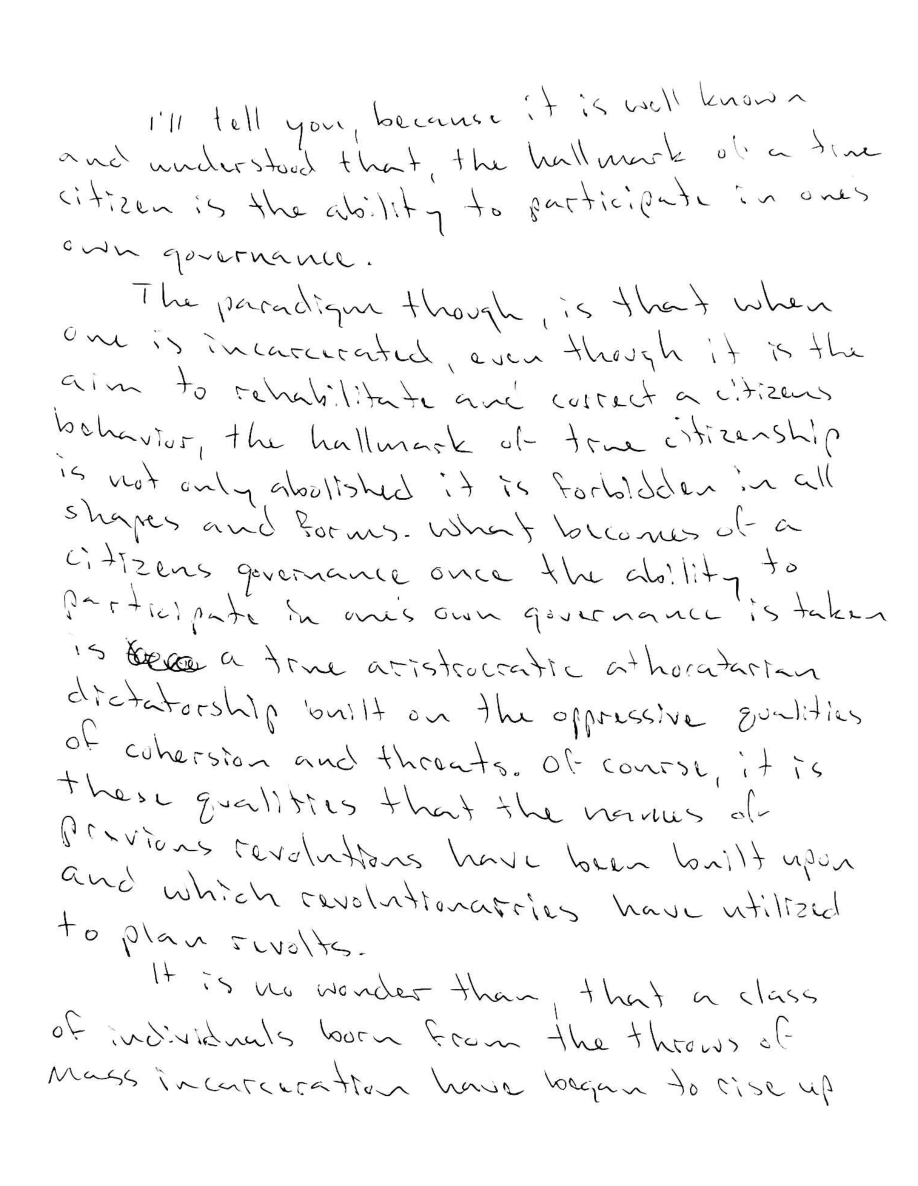 I'll tell you, because it is well known
and understood that, the hallmark of a true
citizen is the ability to participate in one's
own governance.
The paradigm though, is that when
one is incarcerated, even though it is the
aim to rehabilitate and correct a citizens
behavior, the hallmark of true citizenship
is not only abolished it is forbidden in all
shapes and forms. What becomes of a
citizens governance once the ability to
participate in one's own governance is taken
is a true aristrocratic athoratarian
dictatorship built on the oppressive qualities
of cohersion and threats. Of course, it is
these qualities that the names of
previous revolutions have been built upon
and which revolutionarries have utilized
to plan revolts.
It is no wonder than, that a class
of individuals born from the throws of
Mass incarceration have began to rise up